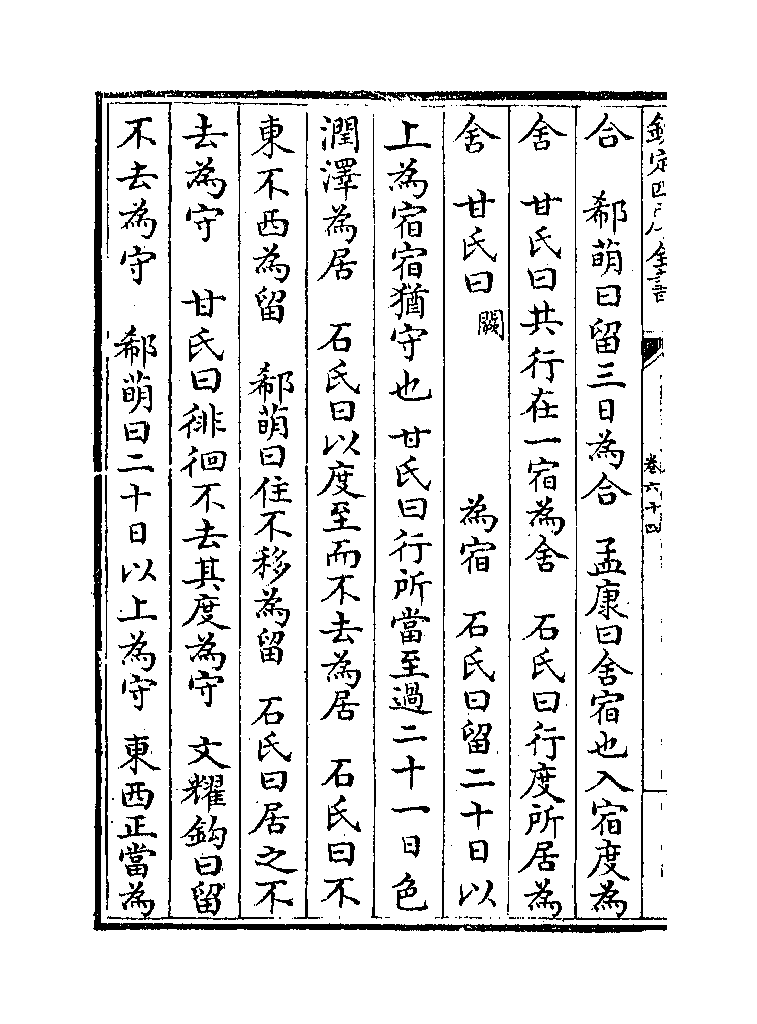 欽定四庫全書
卷六十四
合　郗萌曰留三日為合　孟康曰舍宿也入宿度為
舍　甘氏曰共行在一宿為舍　石氏曰行度所居為
舍　甘氏曰闕　為宿　石氏曰留二十日以
上為宿宿猶守也　甘氏曰行所當至過二十一日色
潤澤為居　石氏曰以度至而不去為居　石氏曰不
東不西為留　郗萌曰住不移為留　石氏曰居之不
去為守　甘氏曰徘徊不去其度為守　文耀鈎曰留
不去為守　郗萌曰二十日以上為守　東西正當為